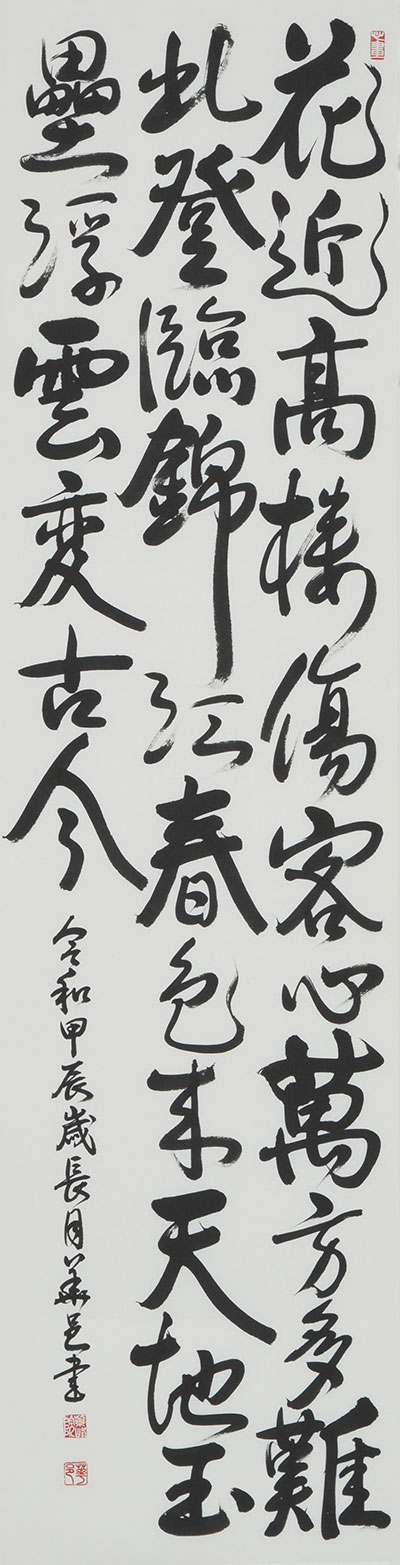 花近高楼傷客心萬方多難
此登臨錦江春色来天地玉
壘浮雲変古今
令和甲辰歳長月華邑書